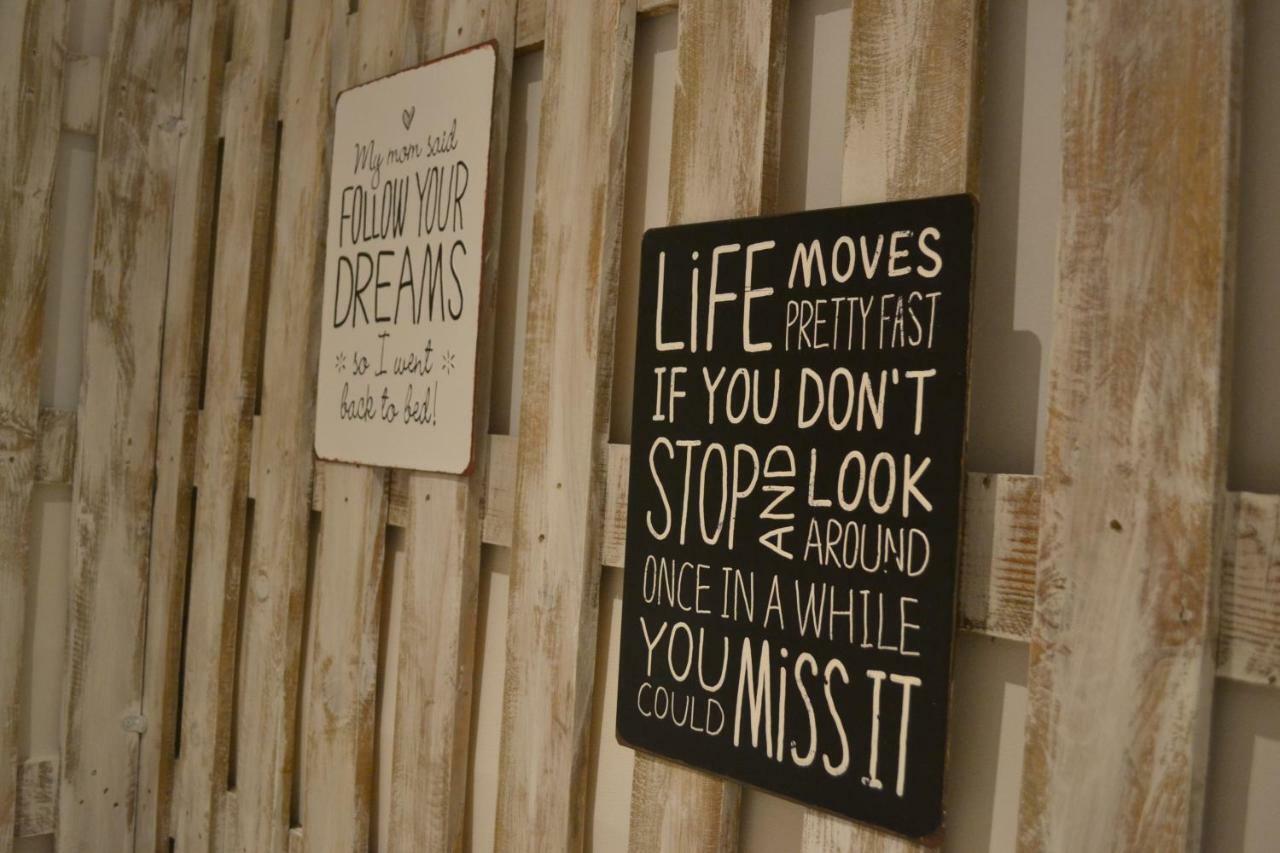 My mom said
FOLLOW YOUR
DREAMS
so I went
back to bed!
LiFE MOVES
PRETTY FAST
IF YOU DON'T
STOP AND LOOK
AROUND
ONCE IN A WHILE
YOU
COULD MiSS IT